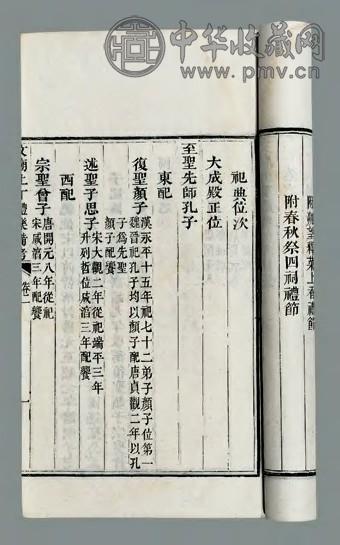 中华收藏网
www.pmv.cn
望釋菜上香禮節
附春秋祭四祠禮節
祀典位次
大成殿正位
至聖先師孔子
東配
復聖顏子
漢永平十五年祀七十二弟子顏子位第一
魏晉祀孔子均以顏子配唐貞觀二年以孔
子為先聖
顏子配饗
述聖子思子
宋大觀二年從祀端平三年
升列哲位咸湻三年配饗
西配
宗聖曾子
唐開元八年從祀
宋咸湻三年配饗
文廟上丁禮樂備考 卷一 一